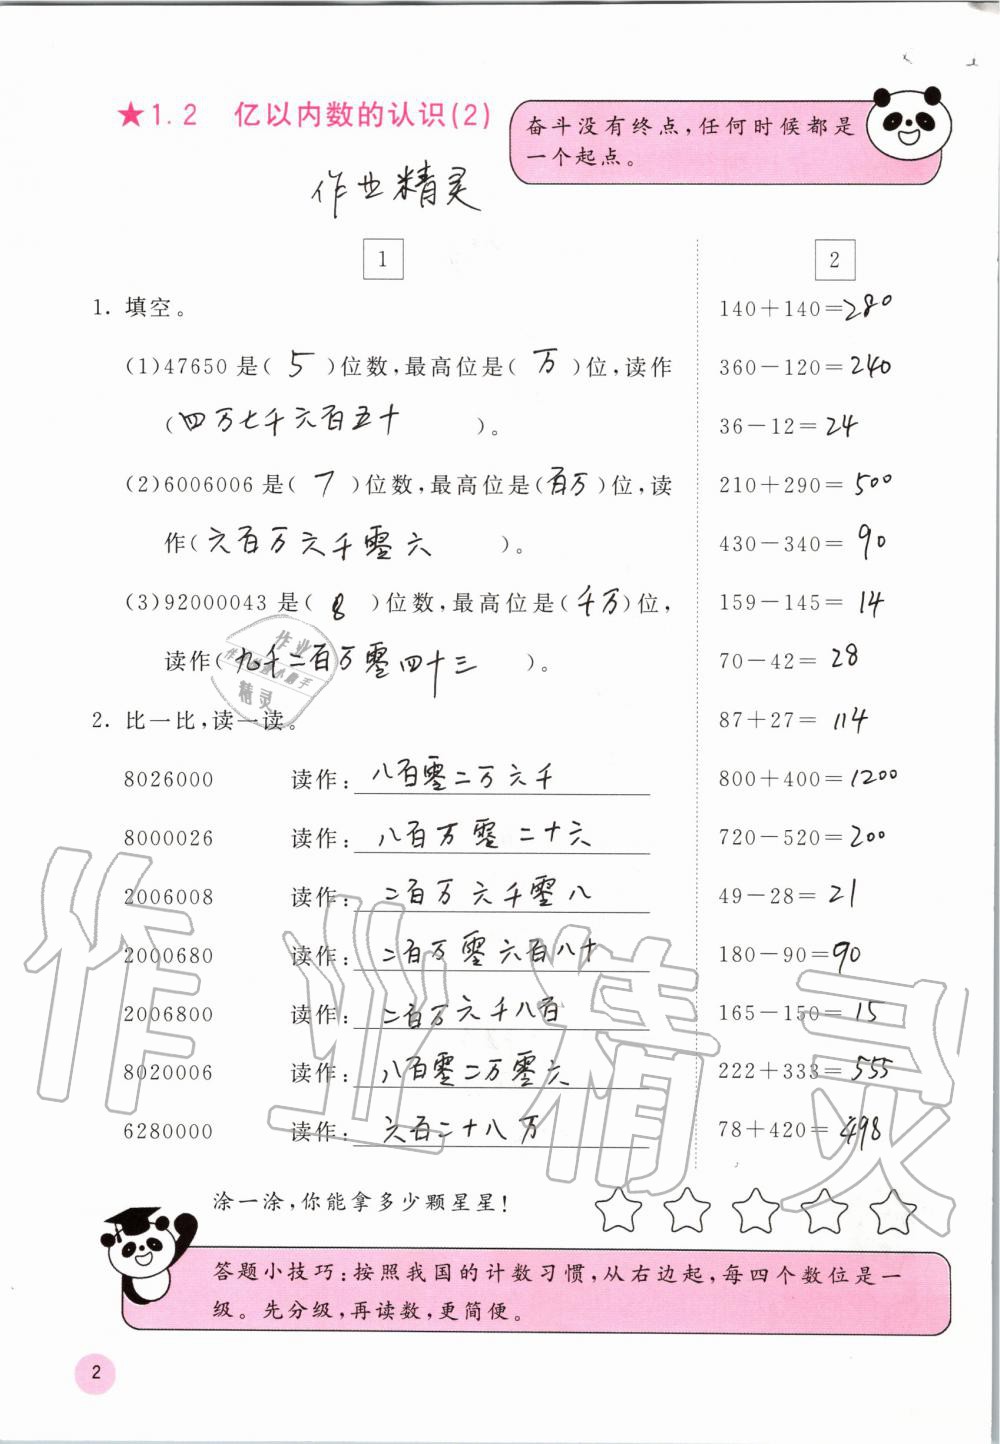 ★1.2 亿以内数的认识(2)
奋斗没有终点，任何时候都是
一个起点。
作业精灵
1
1. 填空。
(1)47650是( 5 )位数，最高位是( 万 )位，读作
( 四万七千六百五十 )。
(2)6006006是( 7 )位数，最高位是(百万)位，读
作( 六百万六千零六 )。
(3)92000043是( 8 )位数，最高位是(千万)位，
读作( 九千二百万零四十三 )。
2. 比一比，读一读。
8026000 读作： 八百零二万六千
8000026 读作： 八百万零二十六
2006008 读作： 二百万六千零八
2000680 读作： 二百万零六百八十
2006800 读作： 二百万六千八百
8020006 读作： 八百零二万零六
6280000 读作： 六百二十八万
2
140+140=280
360-120=240
36-12=24
210+290=500
430-340=90
159-145=14
70-42=28
87+27=114
800+400=1200
720-520=200
49-28=21
180-90=90
165-150=15
222+333=555
78+420=498
涂一涂，你能拿多少颗星星！
答题小技巧：按照我国的计数习惯，从右边起，每四个数位是一
级。先分级，再读数，更简便。
2
作业精灵